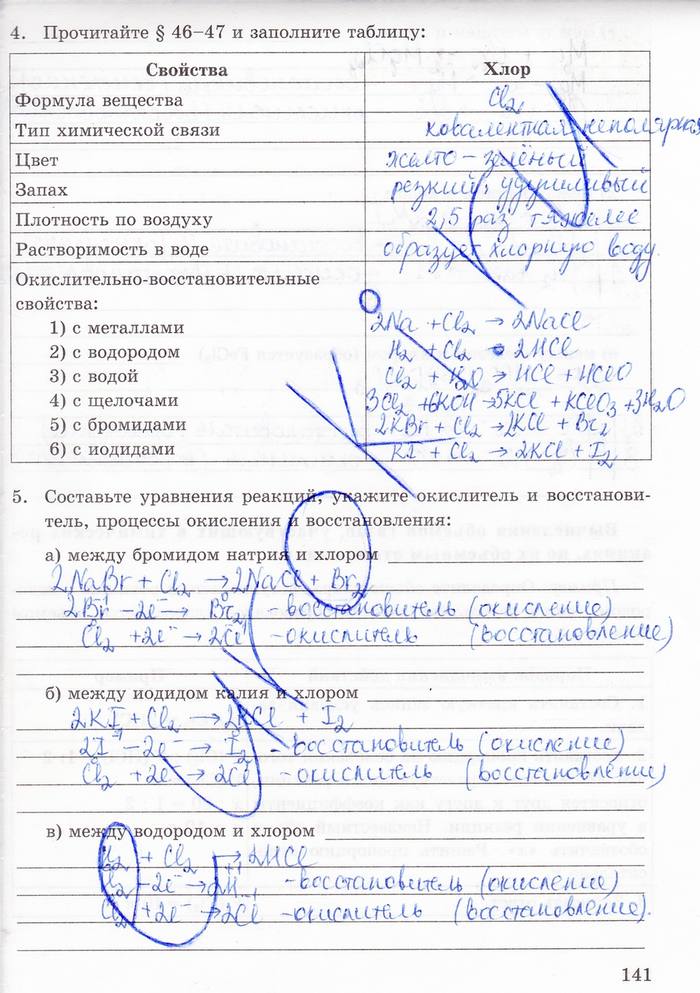 4. Прочитайте § 46–47 и заполните таблицу:
Свойства Хлор
Формула вещества Cl₂
Тип химической связи ковалентная неполярная
Цвет желто – зелёный
Запах резкий, удушливый
Плотность по воздуху 2,5 раз тяжелее
Растворимость в воде образует хлорную воду.
Окислительно-восстановительные
свойства:
1) с металлами 2Na + Cl₂ → 2NaCl
2) с водородом H₂ + Cl₂ → 2HCl
3) с водой Cl₂ + H₂O → HCl + HClO
4) с щелочами 3Cl₂ + 6KOH → 5KCl + KClO₃ + 3H₂O
5) с бромидами 2KBr + Cl₂ → 2KCl + Br₂
6) с иодидами KI + Cl₂ → 2KCl + I₂
5. Составьте уравнения реакций, укажите окислитель и восстанови-
тель, процессы окисления и восстановления:
а) между бромидом натрия и хлором
2NaBr + Cl₂ → 2NaCl + Br₂
2Br⁻¹ – 2e⁻ → Br₂⁰ – восстановитель (окисление)
Cl₂⁰ + 2e⁻ → 2Cl⁻ – окислитель (восстановление)
б) между иодидом калия и хлором
2KI + Cl₂ → 2KCl + I₂
2I⁻¹ – 2e⁻ → I₂⁰ – восстановитель (окисление)
Cl₂⁰ + 2e⁻ → 2Cl⁻ – окислитель (восстановление)
в) между водородом и хлором
H₂ + Cl₂ → 2HCl
H₂ – 2e⁻ → 2H⁺¹ – восстановитель (окисление)
Cl₂ + 2e⁻ → 2Cl⁻¹ – окислитель (восстановление).
141